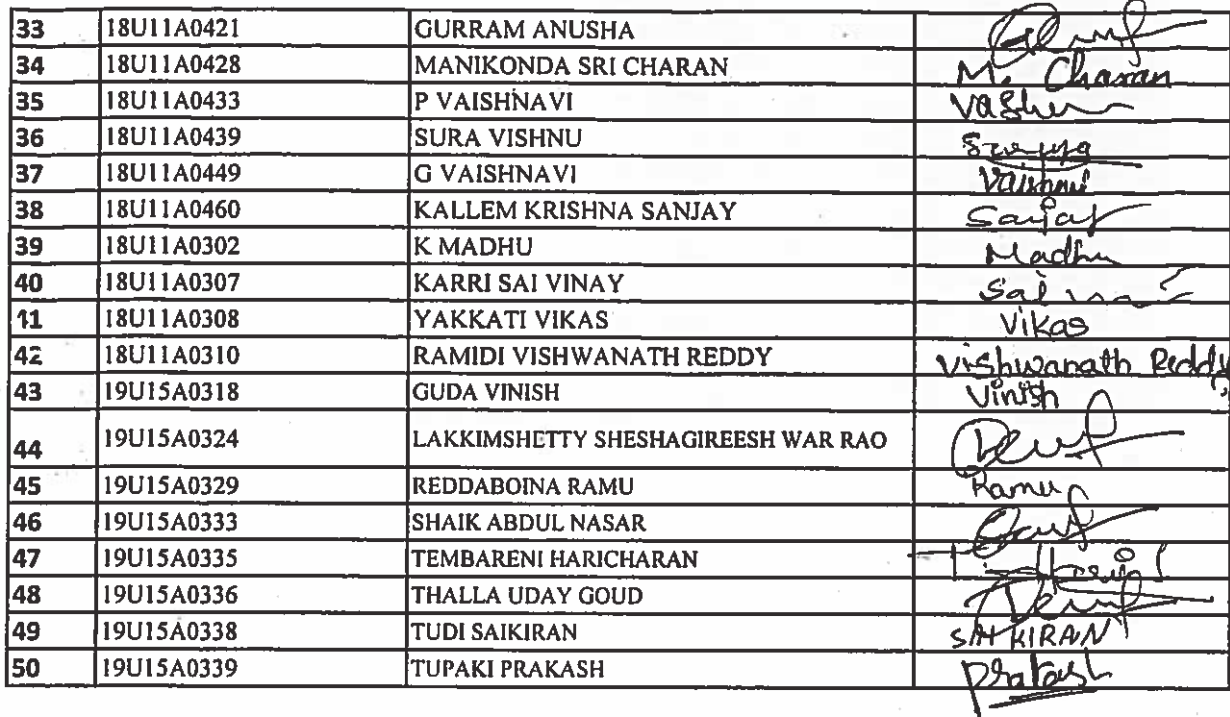 33 18U11A0421 GURRAM ANUSHA
34 18U11A0428 MANIKONDA SRI CHARAN M. Charan
35 18U11A0433 P VAISHNAVI
36 18U11A0439 SURA VISHNU
37 18U11A0449 G VAISHNAVI
38 18U11A0460 KALLEM KRISHNA SANJAY Sanjay
39 18U11A0302 K MADHU Madhu
40 18U11A0307 KARRI SAI VINAY Sai
11 18U11A0308 YAKKATI VIKAS Vikas
42 18U11A0310 RAMIDI VISHWANATH REDDY Vishwanath Reddy
43 19U15A0318 GUDA VINISH Vinish
44 19U15A0324 LAKKIMSHETTY SHESHAGIREESH WAR RAO
45 19U15A0329 REDDABOINA RAMU Ramu
46 19U15A0333 SHAIK ABDUL NASAR
47 19U15A0335 TEMBARENI HARICHARAN
48 19U15A0336 THALLA UDAY GOUD
49 19U15A0338 TUDI SAIKIRAN SAI KIRAN
50 19U15A0339 TUPAKI PRAKASH Prakash